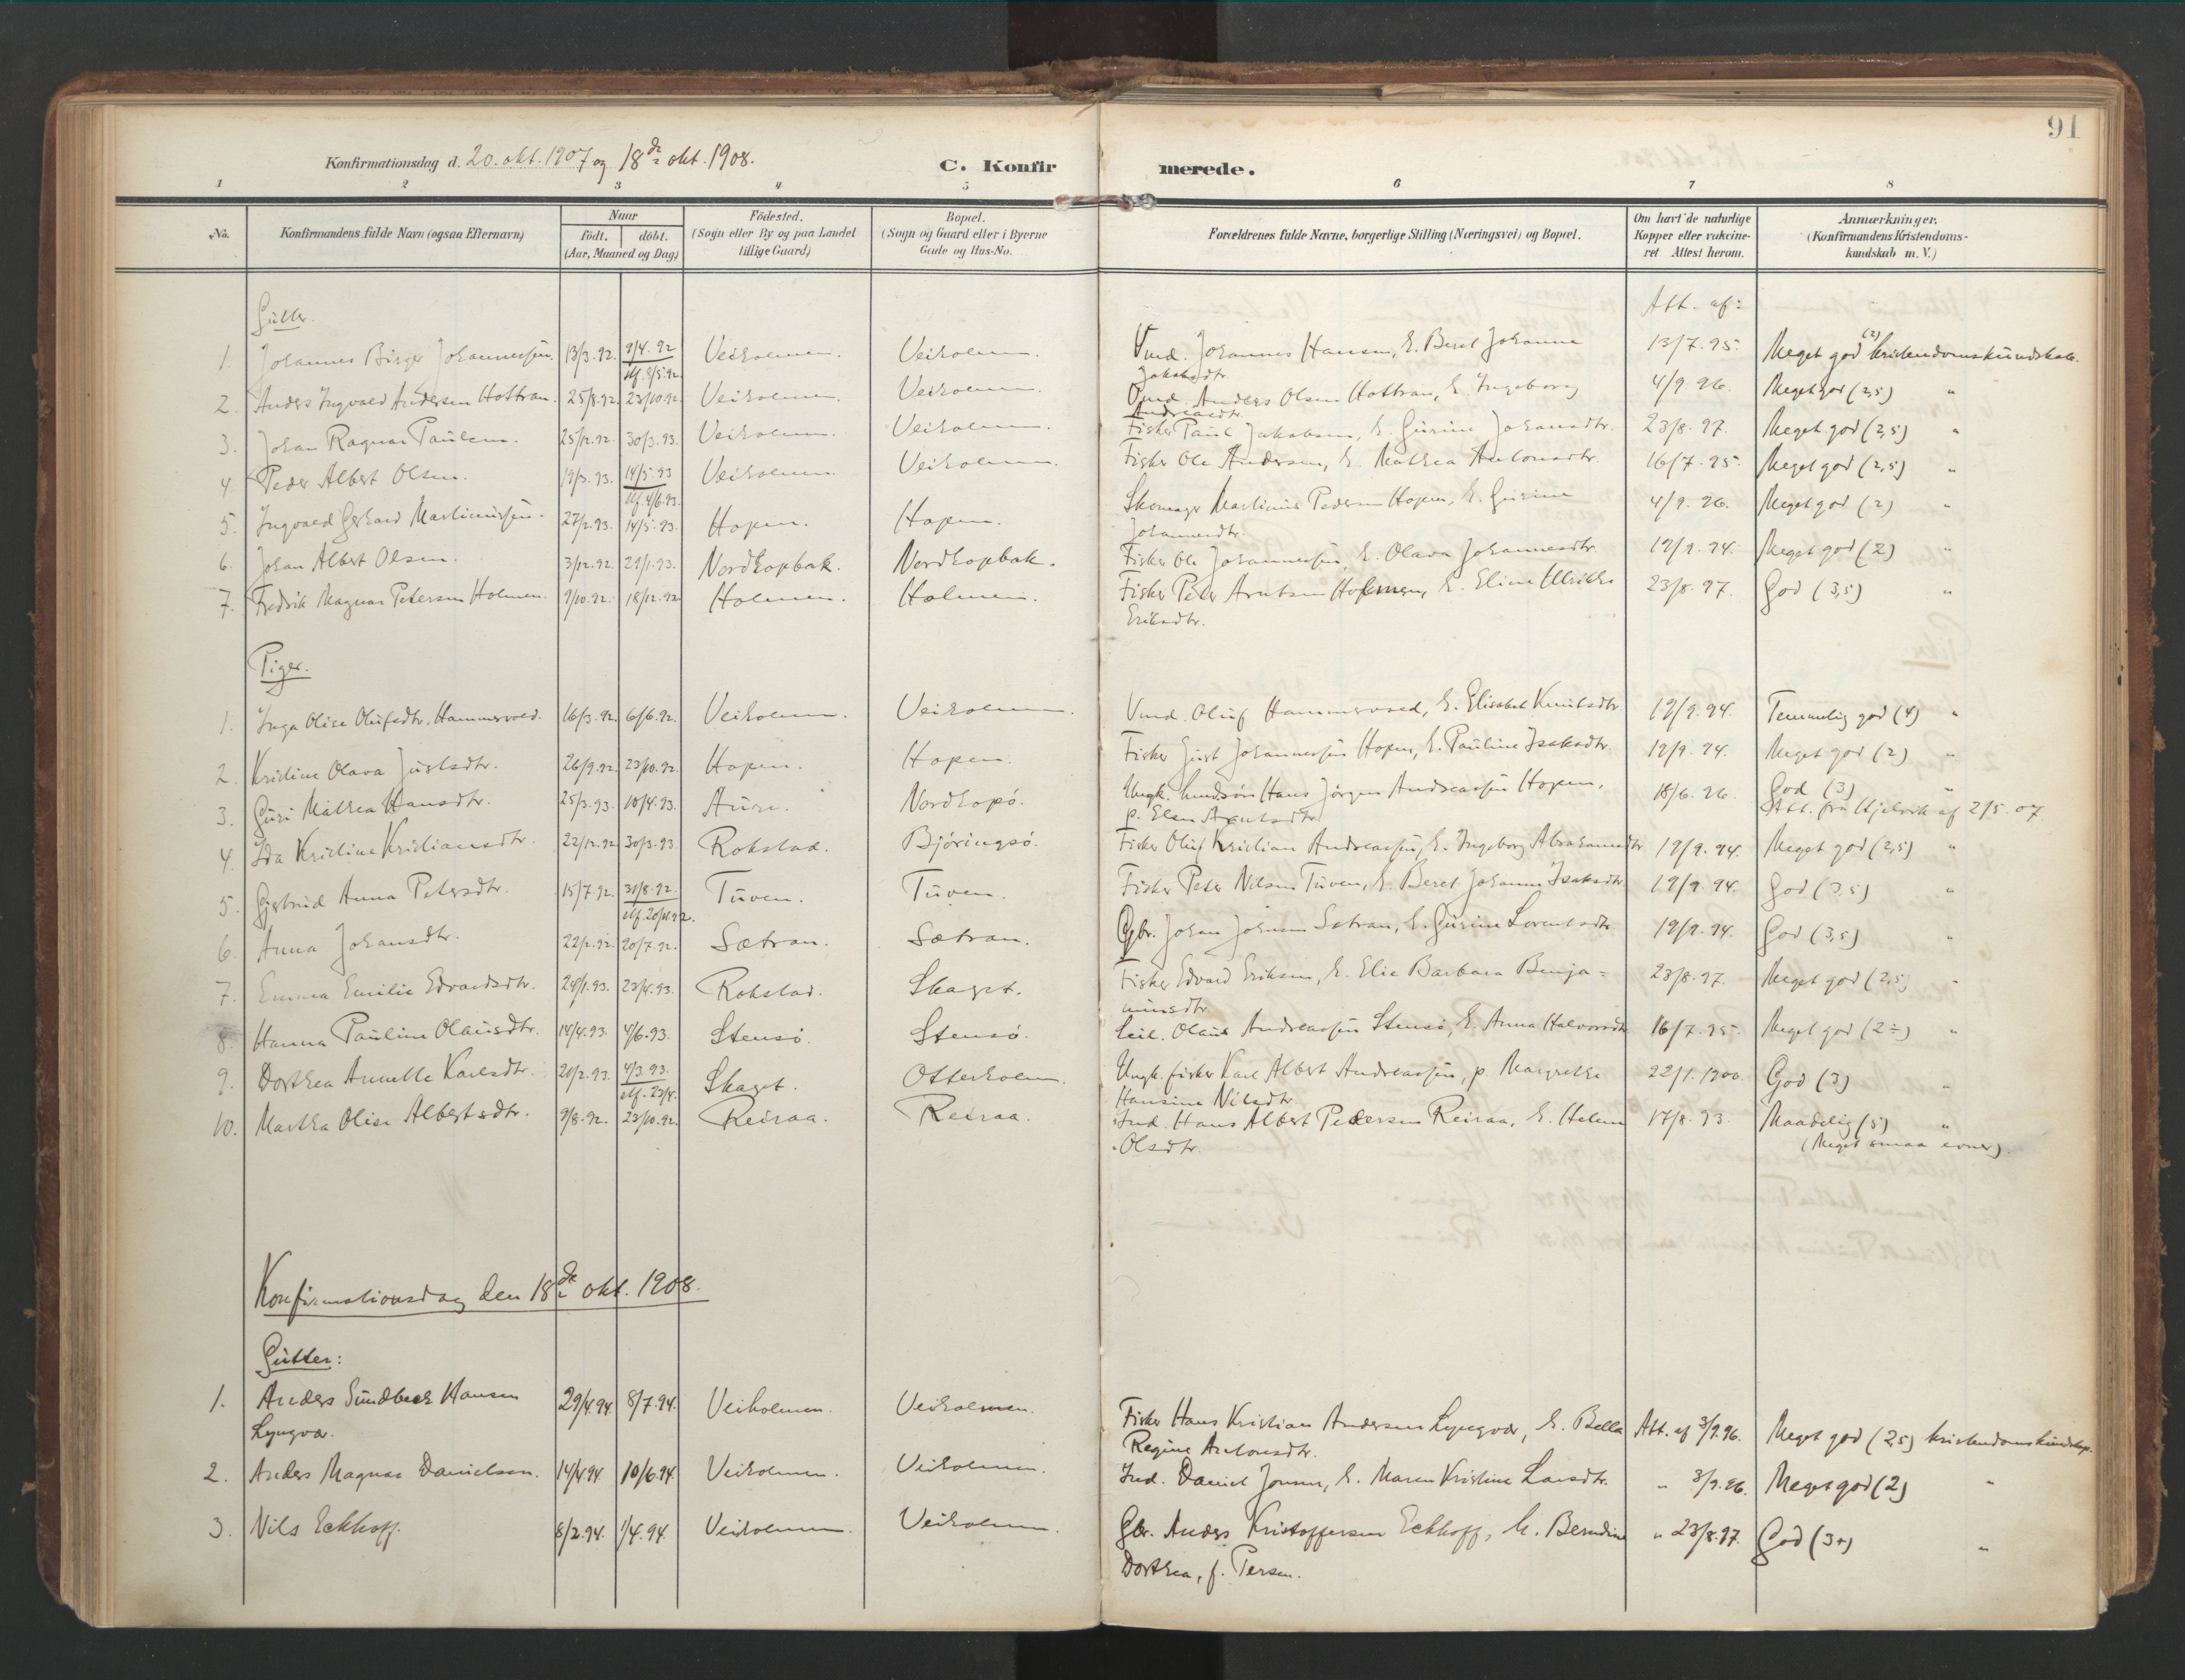 91
Konfirmationsdag d. 20. okt. 1907 og 18de okt. 1908.
C. Konfirmerede.
1 2 3 4 5 6 7 8
No.
Konfirmandens fulde Navn (ogsaa Efternavn)
Naar
födt. döbt.
(Aar, Maaned og Dag)
Födested.
(Sogn eller By og paa Landet
tillige Gaard)
Bopæl.
(Sogn og Gaard eller i Byerne
Gade og Hus-No.
Forældrenes fulde Navne, borgerlige Stilling (Næringsvei) og Bopæl.
Om havt de naturlige
Kopper eller vaccine-
ret Attest herom.
Anmærkninger.
(Konfirmandens Kristendoms-
kundskab m. V.)
Gutter.
Att. af:
1. Johannes Birger Johannessen. 13/3.92. 9/4.92 Veiholmen. Veiholmen. Johannes Hansen, E. Beret Johanna 13/7.95. Meget god (2) kristendomskundskab.
Jakobsdtr.
2. Anders Ingvald Andersen Hottran. 25/8.92. 23/10.92 Veiholmen. Veiholmen. Anders Olsen Hottran, E. Ingeborg 4/9.96. Meget god (2,5) "
Andreasdtr.
3. Johan Ragnar Paulsen. 25/12.92. 30/3.93. Veiholmen. Veiholmen. Fisker Paul Jakobsen, E. Gurine Johansdtr. 23/8.97. Meget god (2,5) "
4. Peder Albert Olsen. 19/3.93. 14/5.93 Veiholmen. Veiholmen. Fisker Ole Andersen, E. Mathea Antonsdtr. 16/7.95. Meget god (2,5) "
5. Ingvald Gerhard Martinussen. 27/2.93. 14/5.93. Hopen. Hopen. Skomager Martinus Pedersen Hopen, E. Gurine 4/9.96. Meget god (2) "
Johannesdtr.
6. Johan Albert Olsen. 3/12.92. 29/1.93. Nordhopbak. Nordhopbak. Fisker Ole Johannessen, E. Olava Johannesdtr. 19/9.94. Meget god (2) "
7. Fredrik Magnus Petersen Holmen. 9/10.92. 18/12.92 Holmen. Holmen. Fisker Peter Arntsen Holmen, E. Eline Ulrikke 23/8.97. God (3,5) "
Eriksdtr.
Piger.
1. Inga Olise Olufsdtr. Hammervold. 16/3.92. 6/6.92. Veiholmen. Veiholmen. Oluf Hammervold, E. Elisabet Knutsdtr. 19/9.94. Temmelig god (4) "
2. Kristine Olava Justsdtr. 26/9.92. 23/10.92. Hopen. Hopen. Fisker Just Johannessen Hopen, E. Pauline Isaksdtr. 19/9.94. Meget god (2) "
3. Guri Mathea Hansdtr. 25/3.93. 10/4.93. Aure. Nordhopö. Ungk. Hans Jörgen Andreassen Hopen, 18/6.96. God (3) "
p. Elen Arntsdtr. Att. fra af 2/5.07.
4. Ida Kristine Kristiansdtr. 22/12.92 30/3.93 Rokstad. Björingsö. Fisker Oluf Kristian Andreassen, E. Ingeborg Abrahamsdtr 19/9.94. Meget god (2,5) "
5. Gjertrud Anna Petersdtr. 15/7.92. 31/8.92. Tuven. Tuven. Fisker Peter Nilsen Tuven, E. Beret Johanna Isaksdtr. 19/9.94. God (3,5) "
6. Anna Johansdtr. 22/2.92. 20/7.92. Sætran. Sætran. Johan Johnsen Setran, E. Gurine Lorentsdtr. 19/9.94. God (3,5) "
7. Emma Emilie Edvardsdtr. 24/1.93. 23/4.93. Rokstad. Skaget. Fisker Edvard Eriksen, E. Elie Barbara Benja- 23/8.97. Meget god (2,5) "
minsdtr
8. Hanna Pauline Olausdtr. 14/4.93. 4/6.93. Stensö. Stensö. Leil. Olaus Andreassen Stensö, E. Anna Halvorsdtr. 16/7.95. Meget god (2÷) "
9. Dorthea Annette Karlsdtr. 20/2.93. 4/3.93. Skaget. Otterholm. Ungk. fisker Karl Albert Andreassen, p. Margrethe 22/1.1900. God (3) "
Hansine Nilsdtr.
10. Martha Olise Albertsdtr. 9/8.92. 23/10.92. Reiraa. Reiraa. Ind. Hans Albert Pedersen Reiraa, E. Helene 17/8.93. Maadelig (5) "
Olsdtr. (Meget smaa evner).
Konfirmationsdag den 18de okt. 1908.
Gutter:
1. Anders Sundbeck Hansen 29/4.94. 8/7.94. Veiholmen. Veiholmen. Fisker Hans Kristian Andersen Lyngvær, E. Bella Att. af 3/9.96. Meget god (2,5) kristendomskundskap.
Lyngvær. Regine Antonsdtr.
2. Anders Magnus Danielsen. 14/4.94. 10/6.94. Veiholmen. Veiholmen. Ind. Daniel Jonsen, E. Maren Kristine Larsdtr. " 3/9.96. Meget god (2) "
3. Nils Eckhoff. 8/2.94. 1/4.94. Veiholmen. Veiholmen. Gbr. Anders Kristoffersen Eckhoff, E. Berndine " 23/8.97. God (3+) "
Dorthea, f. Persen.